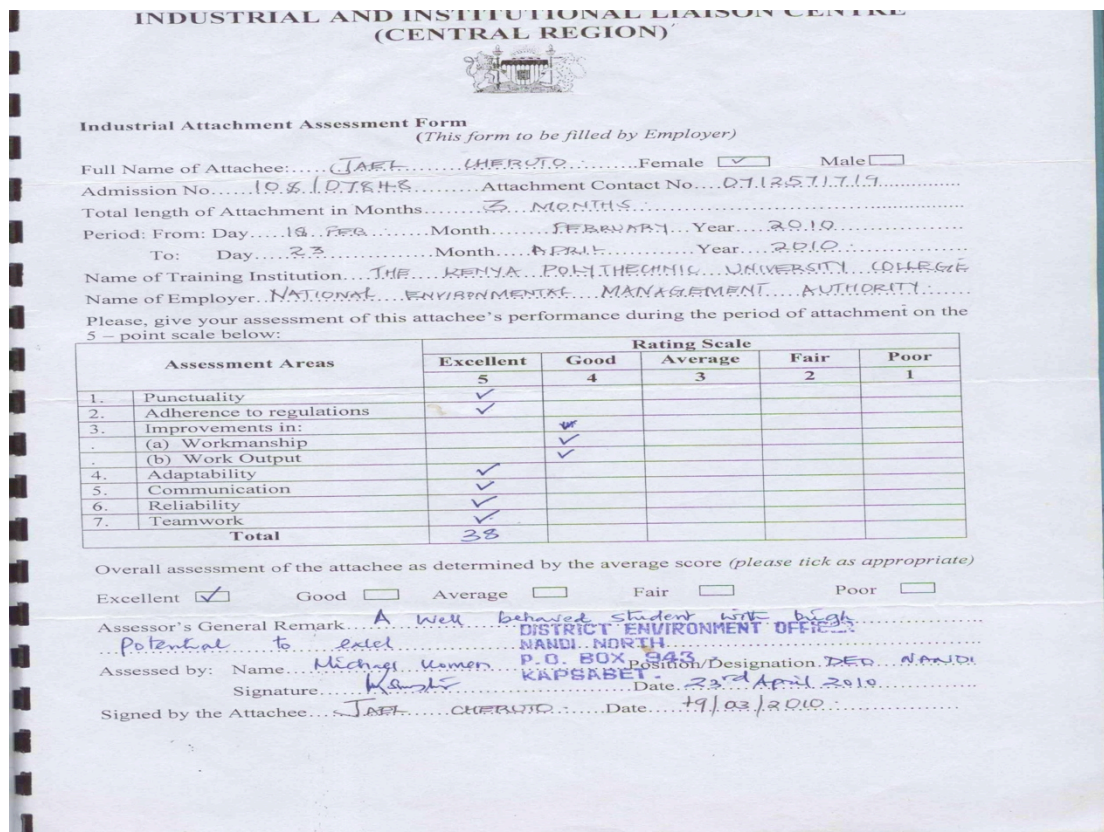 INDUSTRIAL AND INSTITUTIONAL LIAISON CENTRE
(CENTRAL REGION)
Industrial Attachment Assessment Form
(This form to be filled by Employer)
Full Name of Attachee: JAEL CHERUTO Female ✓ Male
Admission No. 108/07848 Attachment Contact No. 0712571719
Total length of Attachment in Months 3 MONTHS
Period: From: Day 18 FEB Month FEBRUARY Year 2010
To: Day 23 Month APRIL Year 2010
Name of Training Institution THE KENYA POLYTHECHNIC UNIVERSITY COLLEGE
Name of Employer NATIONAL ENVIRONMENTAL MANAGEMENT AUTHORITY
Please, give your assessment of this attachee's performance during the period of attachment on the
5 – point scale below:
Assessment Areas Rating Scale
Excellent Good Average Fair Poor
5 4 3 2 1
1. Punctuality ✓
2. Adherence to regulations ✓
3. Improvements in:
(a) Workmanship ✓
(b) Work Output ✓
4. Adaptability ✓
5. Communication ✓
6. Reliability ✓
7. Teamwork ✓
Total 38
Overall assessment of the attachee as determined by the average score (please tick as appropriate)
Excellent ✓ Good Average Fair Poor
Assessor's General Remark A well behaved student with high
Potential to excel
DISTRICT ENVIRONMENT
NANDI NORTH
P.O. BOX 943
KAPSABET
Assessed by: Name Michael Komen Position/Designation DEO NANDI
Signature Date 23rd April 2010
Signed by the Attachee JAEL CHERUTO Date 19/03/2010